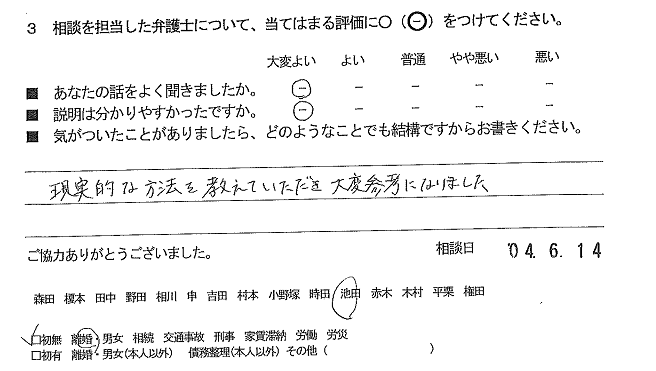 3 相談を担当した弁護士について、当てはまる評価に○（㊀）をつけてください。
大変よい よい 普通 やや悪い 悪い
■ あなたの話をよく聞きましたか。 － － － － －
■ 説明は分かりやすかったですか。 － － － － －
■ 気がついたことがありましたら、どのようなことでも結構ですからお書きください。
現実的な方法を教えていただき大変参考になりました
ご協力ありがとうございました。 相談日 '04. 6. 14
森田 榎本 田中 野田 相川 申 吉田 村本 小野塚 時田 池田 赤木 木村 平栗 権田
□初無 離婚・男女 相続 交通事故 刑事 家賃滞納 労働 労災
□初有 離婚・男女(本人以外) 債務整理(本人以外) その他 ( )